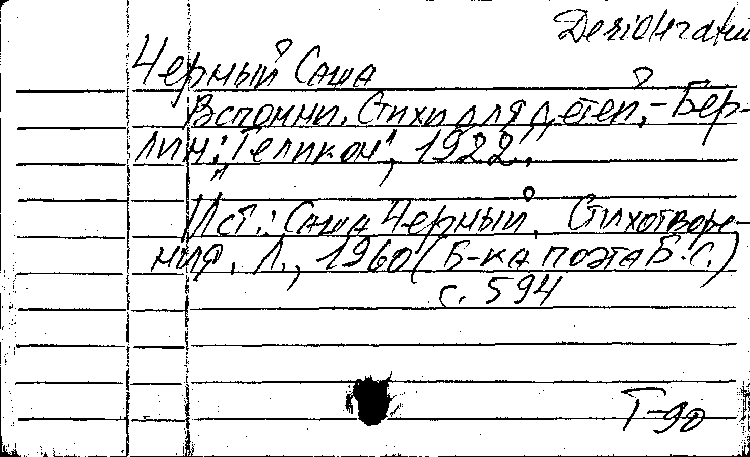 Desiderata
Черный Саша
Вспомни. Стихи для детей. - Бер-
лин: „Геликон", 1922.
Ист.: Саша Черный. Стихотворе-
ния. Л., 1960 (Б-ка поэта Б.с.)
с. 594
Т-90